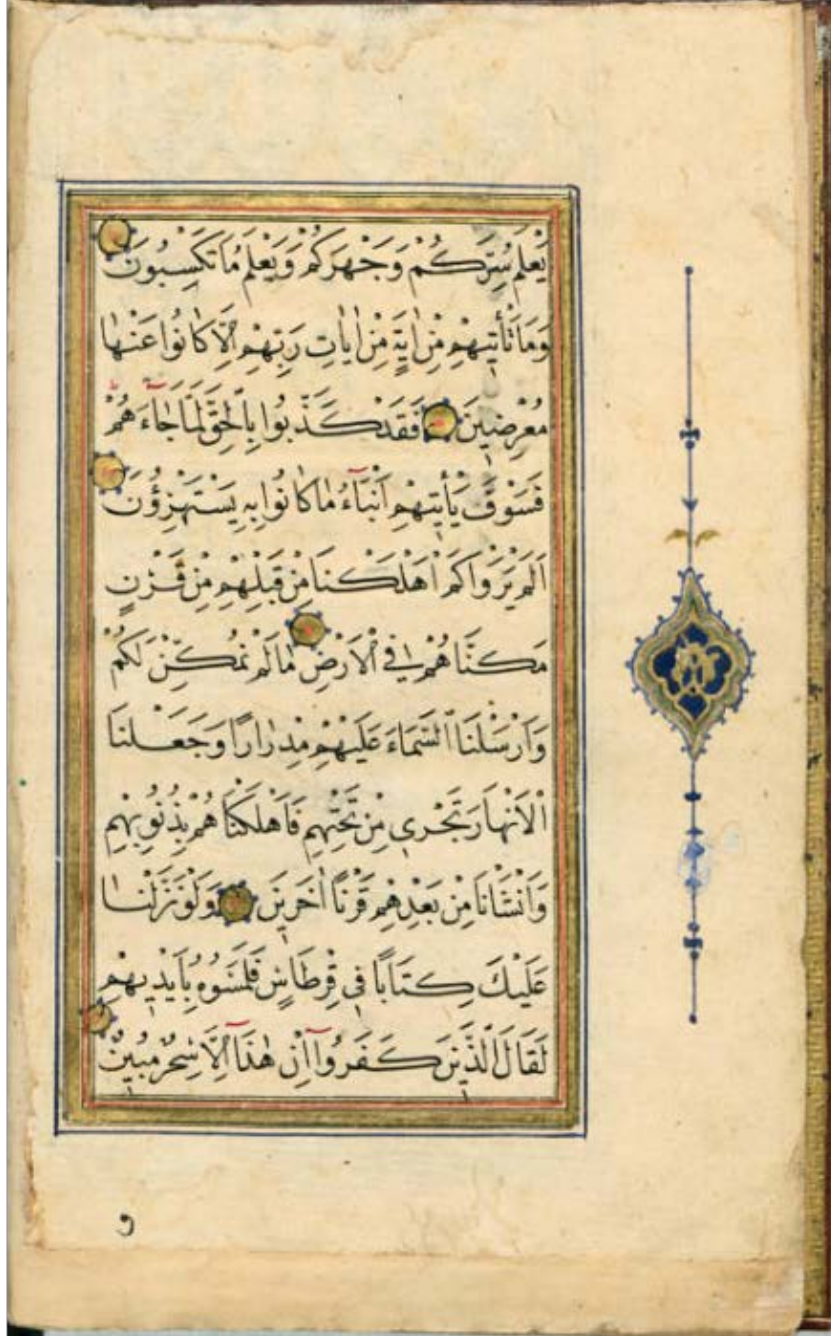 يَعْلَمُ سِرَّكُمْ وَجَهْرَكُمْ وَيَعْلَمُ مَا تَكْسِبُونَ
وَمَا تَأْتِيهِمْ مِنْ اٰيَةٍ مِنْ اٰيَاتِ رَبِّهِمْ اِلَّا كَانُوا عَنْهَا
مُعْرِضِينَ فَقَدْ كَذَّبُوا بِالْحَقِّ لَمَّا جَاءَهُمْ
فَسَوْفَ يَأْتِيهِمْ اَنْبَاءُ مَا كَانُوا بِهِ يَسْتَهْزِؤُنَ
اَلَمْ يَرَوْا كَمْ اَهْلَكْنَا مِنْ قَبْلِهِمْ مِنْ قَرْنٍ
مَكَّنَّاهُمْ فِي الْاَرْضِ مَا لَمْ نُمَكِّنْ لَكُمْ
وَاَرْسَلْنَا السَّمَاءَ عَلَيْهِمْ مِدْرَارًا وَجَعَلْنَا
الْاَنْهَارَ تَجْرِي مِنْ تَحْتِهِمْ فَاَهْلَكْنَاهُمْ بِذُنُوبِهِمْ
وَاَنْشَأْنَا مِنْ بَعْدِهِمْ قَرْنًا اٰخَرِينَ وَلَوْ نَزَّلْنَا
عَلَيْكَ كِتَابًا فِي قِرْطَاسٍ فَلَمَسُوهُ بِاَيْدِيهِمْ
لَقَالَ الَّذِينَ كَفَرُوا اِنْ هٰذَا اِلَّا سِحْرٌ مُبِينٌ